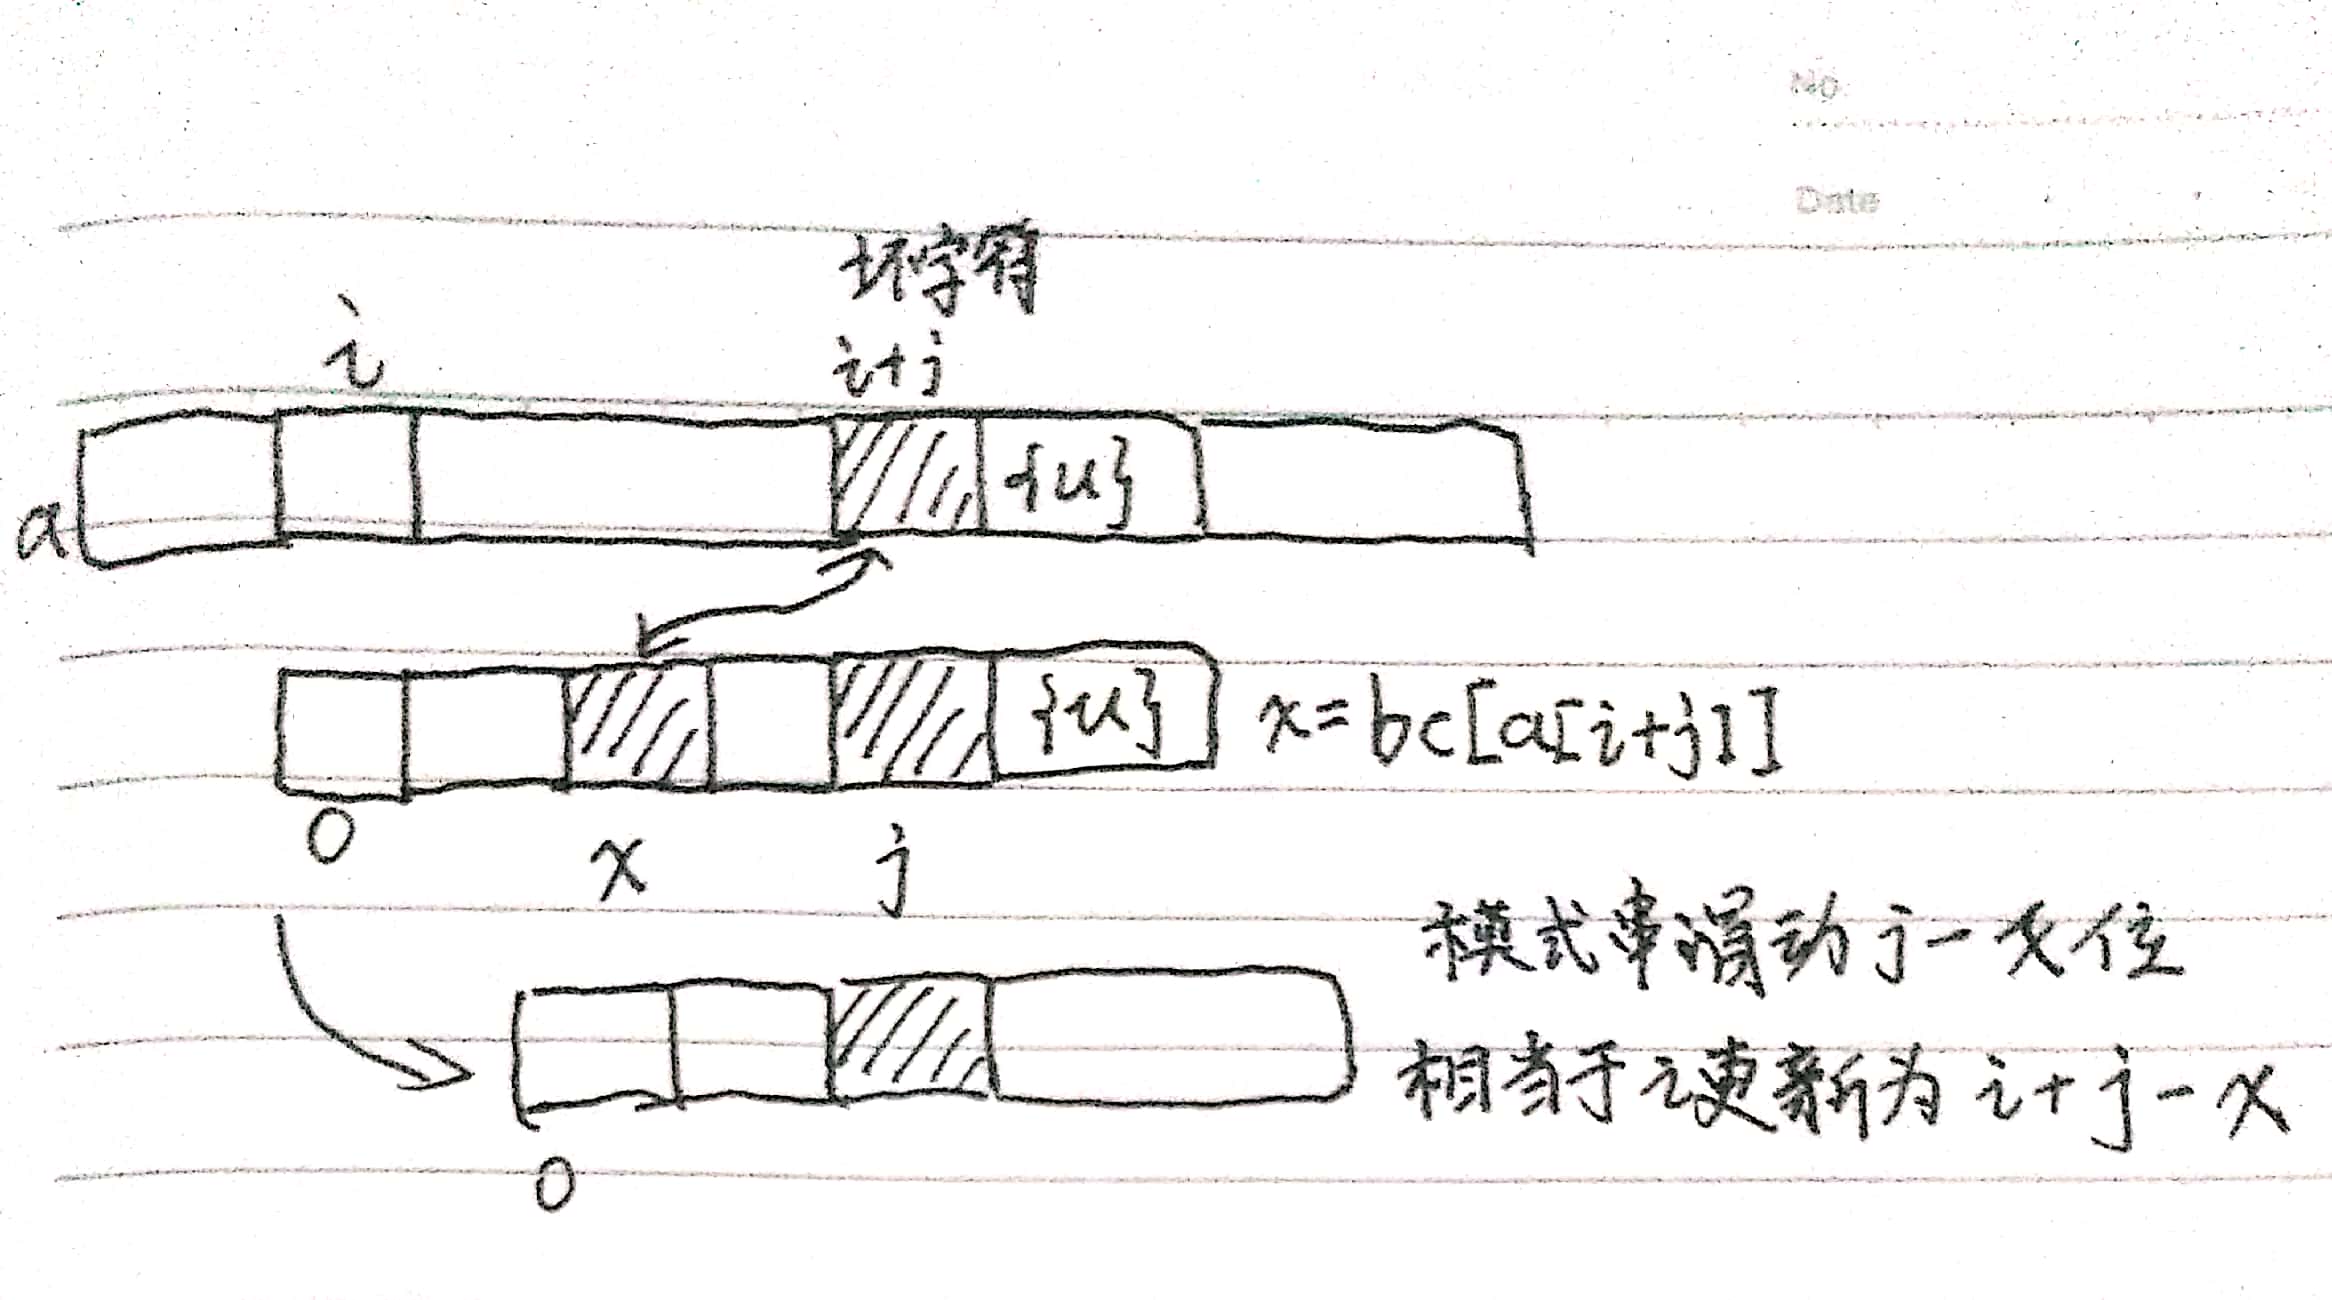 No.
Date
坏字符
i i+j
a {u}
{u} x=bc[a[i+j]]
0 x j
模式串滑动 j-x位
相当于i更新为 i+j-x
0